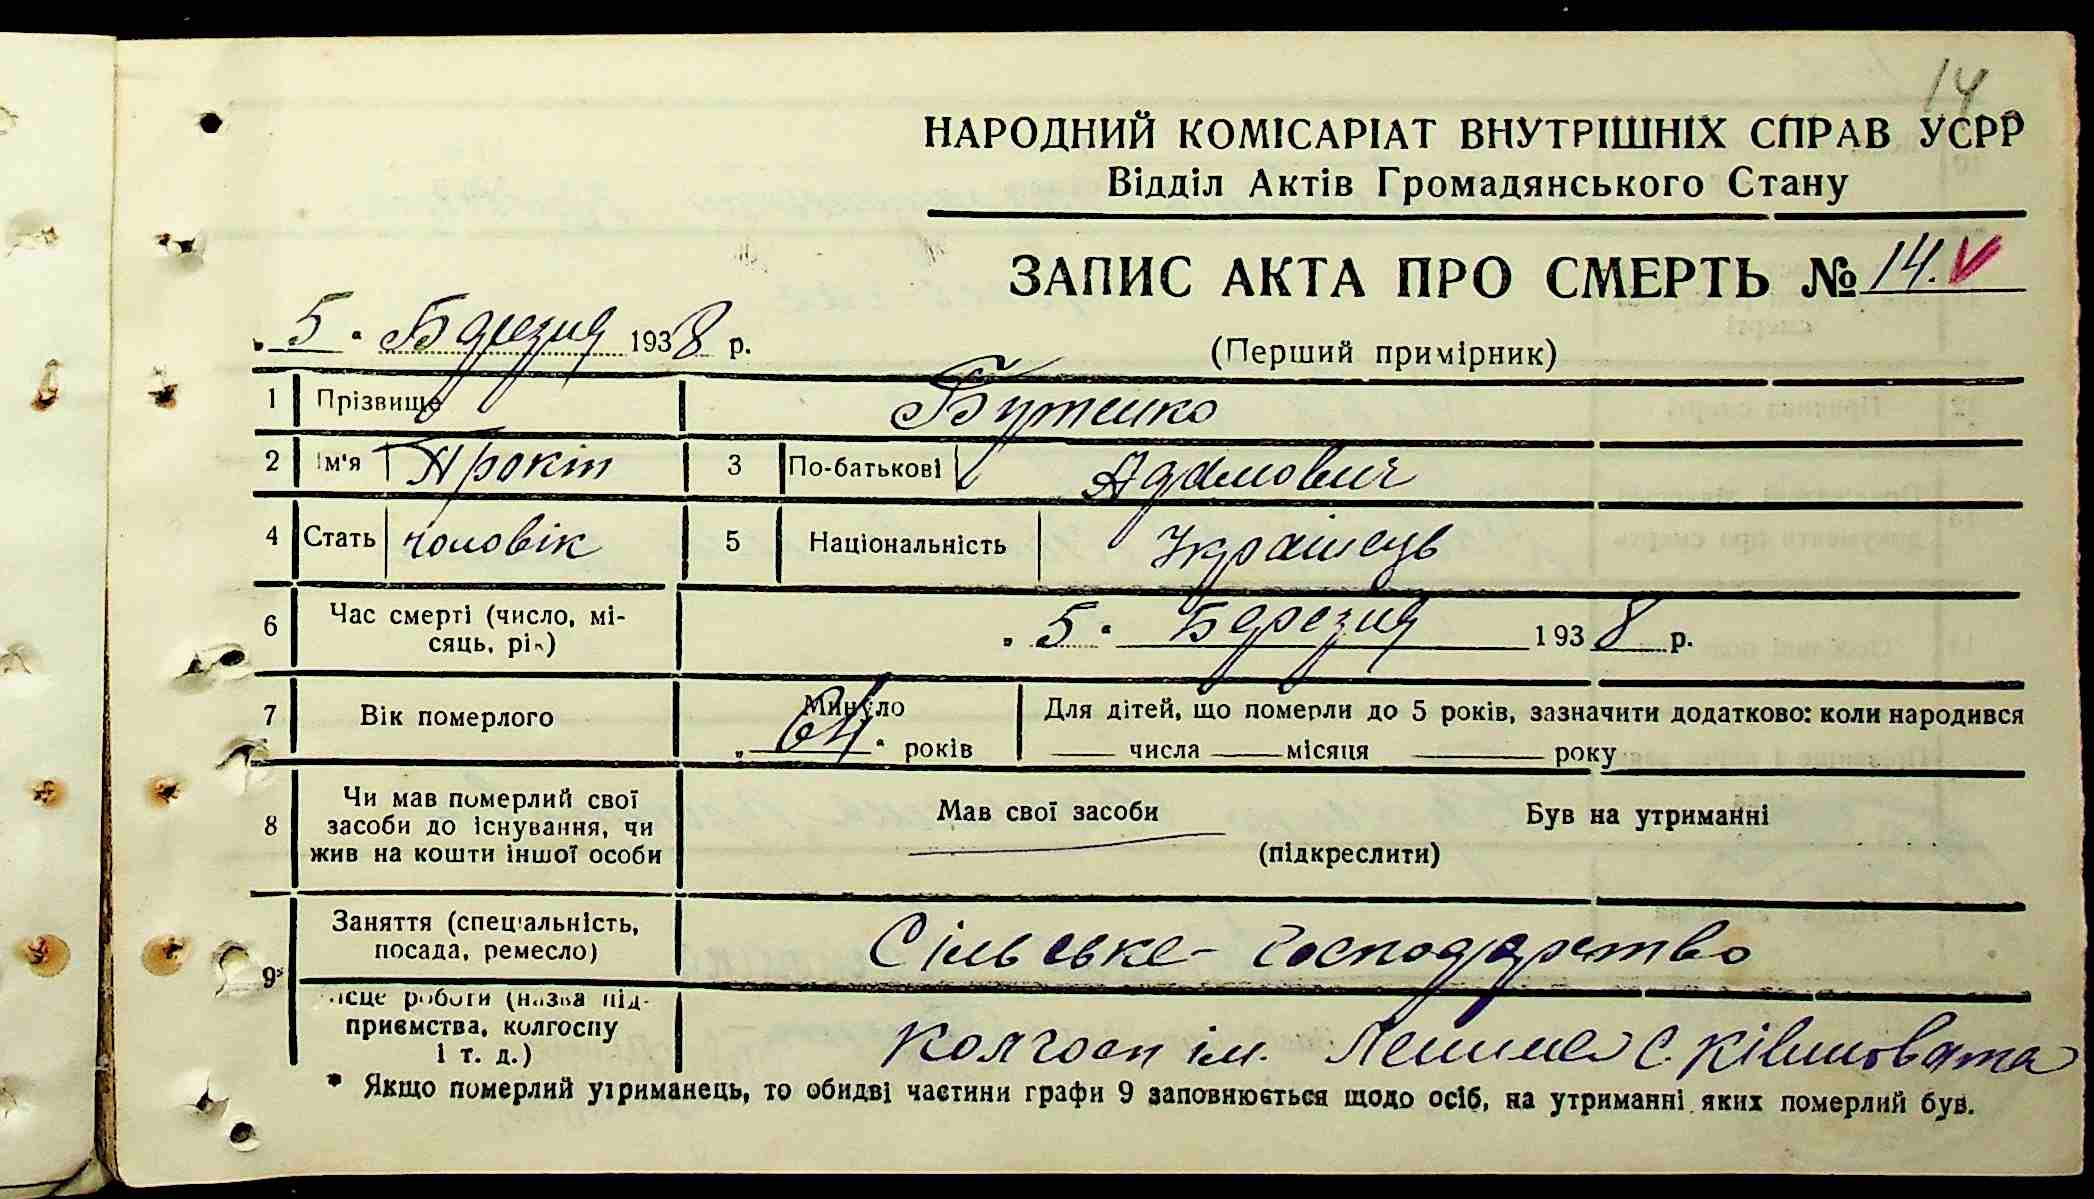 14
НАРОДНИЙ КОМІСАРІАТ ВНУТРІШНІХ СПРАВ УСРР
Відділ Актів Громадянського Стану
ЗАПИС АКТА ПРО СМЕРТЬ № 14. V
„ 5 “ Березня 1938 р.
(Перший примірник)
1 Прізвище Бутенко
2 Ім'я Прокіп 3 По-батькові Адамович
4 Стать чоловік 5 Національність Українець
6 Час смерті (число, мі-
сяць, рік) „ 5 “ Березня 1938 р.
7 Вік померлого Минуло „ 64 “ років
Для дітей, що померли до 5 років, зазначити додатково: коли народився
числа місяця року
8 Чи мав померлий свої
засоби до існування, чи
жив на кошти іншої особи
Мав свої засоби Був на утриманні
(підкреслити)
9* Заняття (спеціальність,
посада, ремесло) Сільське-господарство
Місце роботи (назва під-
приємства, колгоспу
і т. д.) Колгосп ім. Леніна с. Ківшовата
* Якщо померлий утриманець, то обидві частини графи 9 заповнюється щодо осіб, на утриманні яких померлий був.